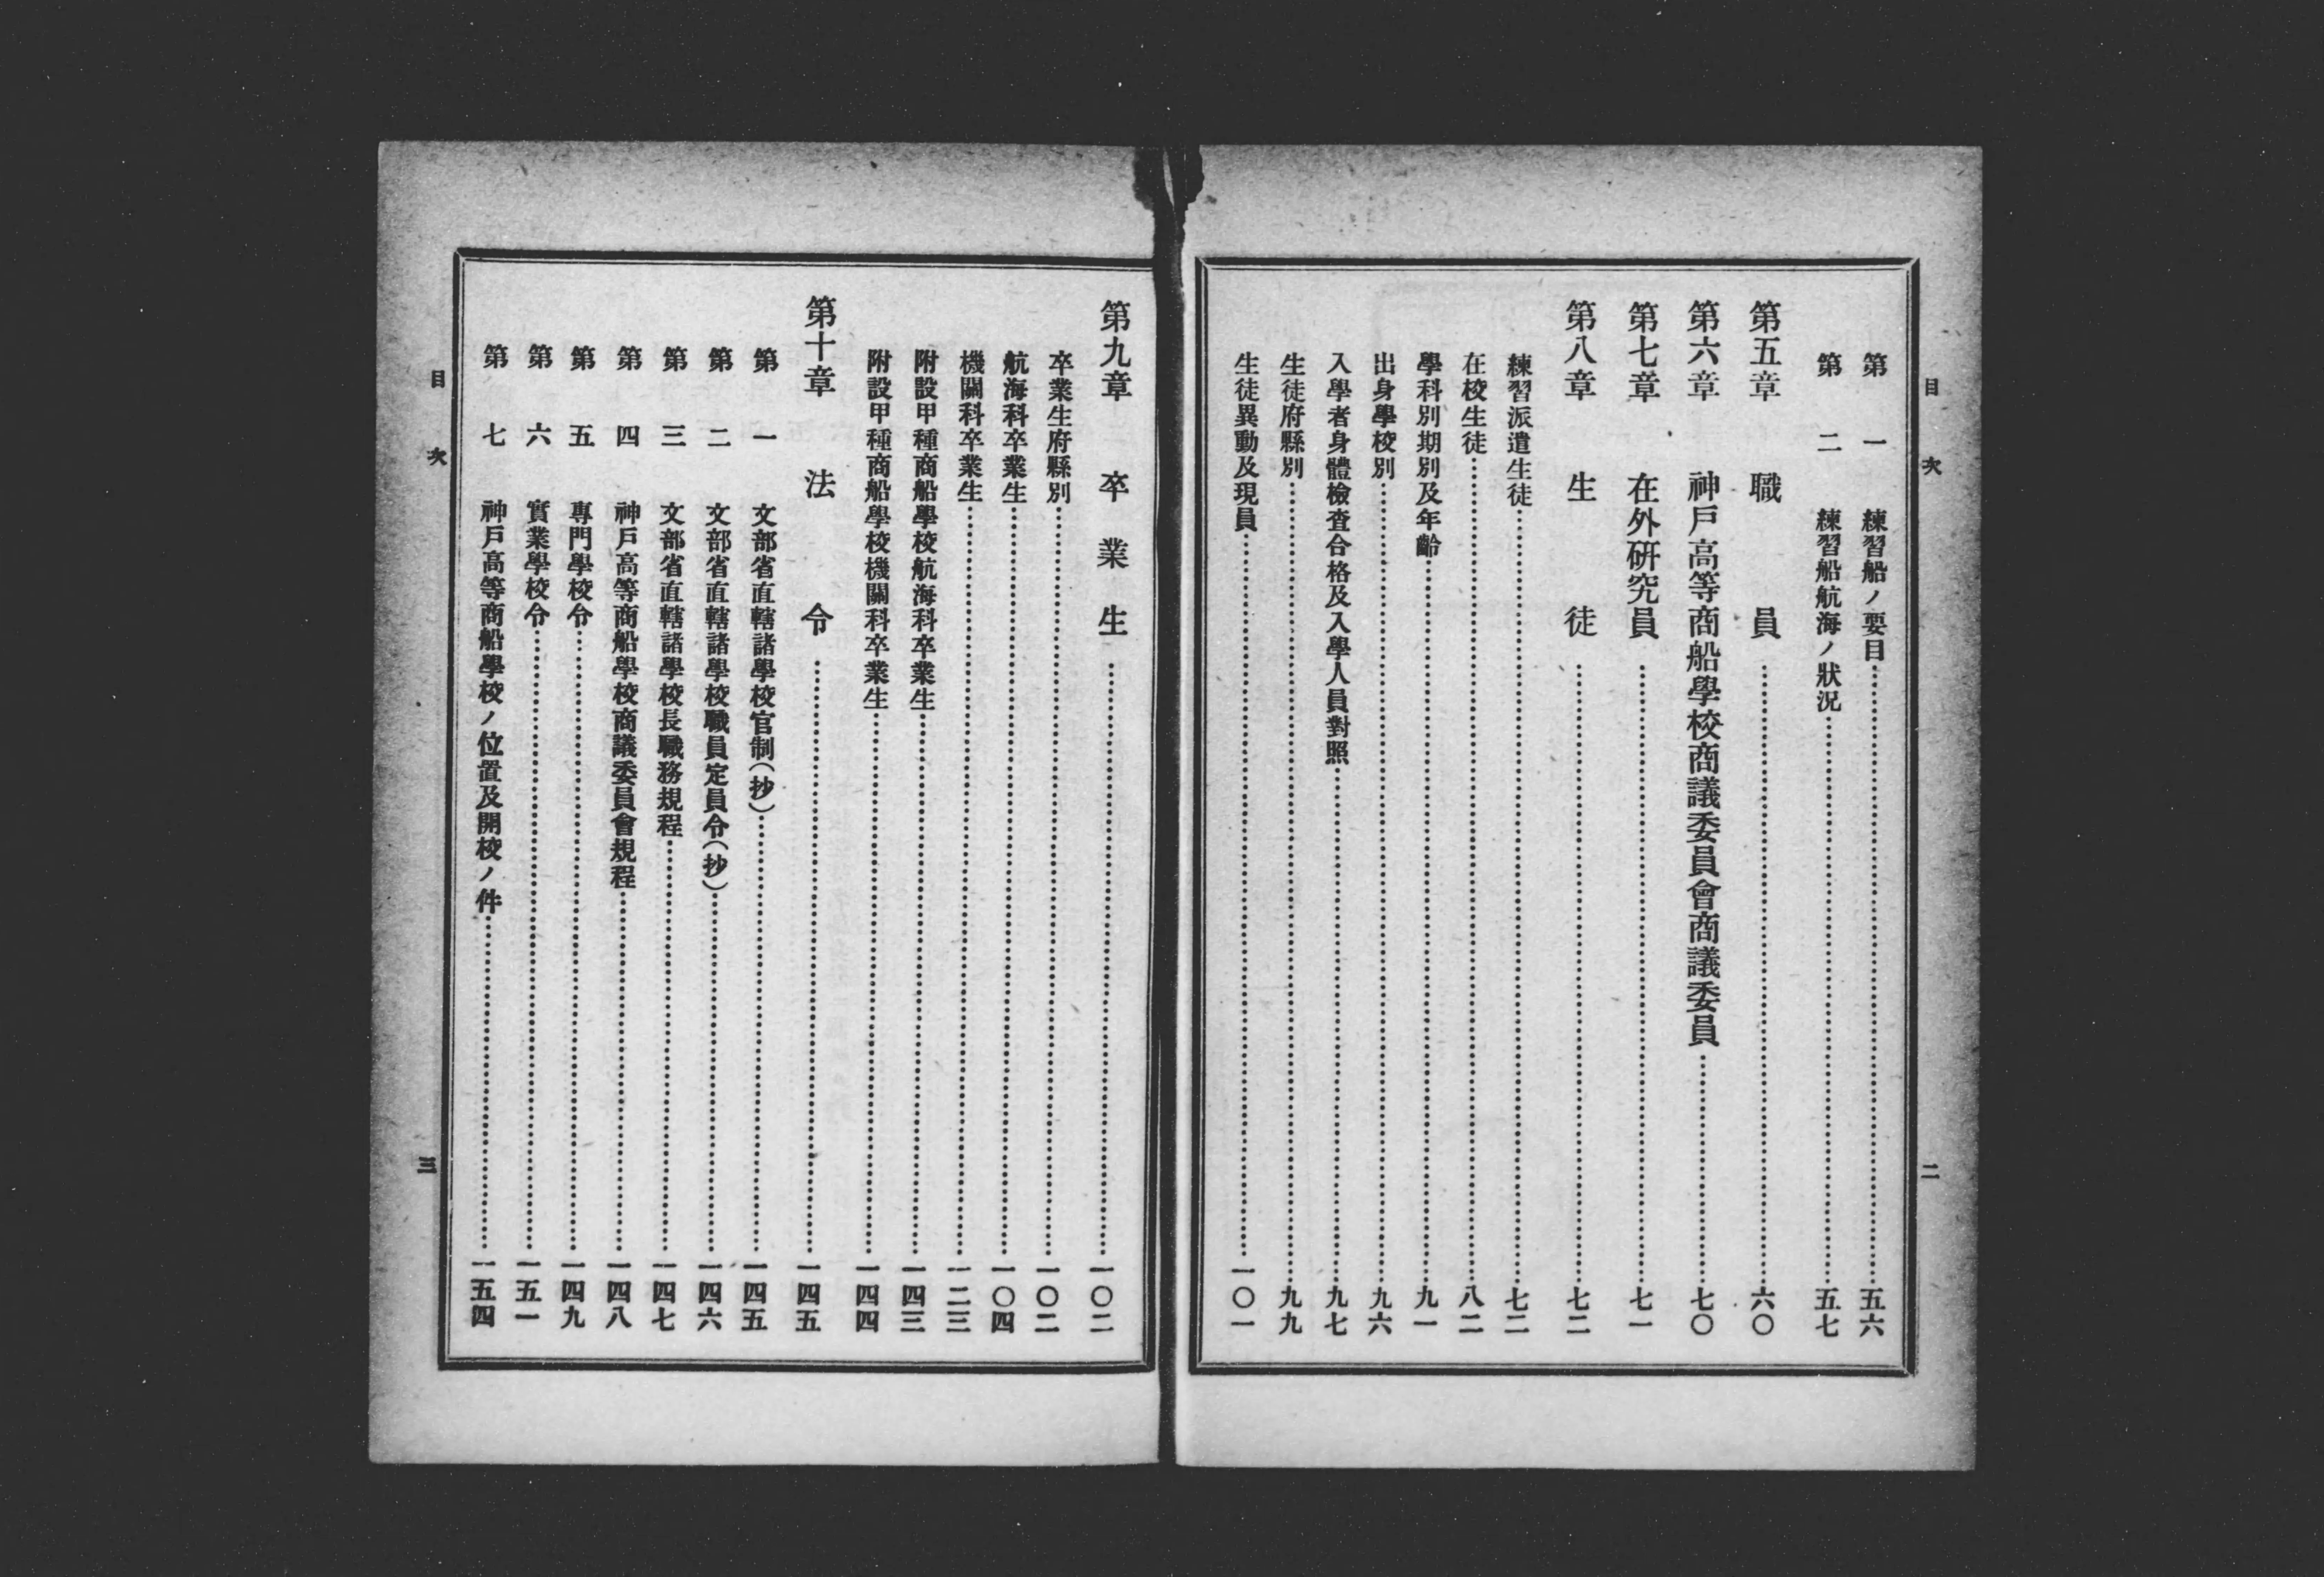 目次
二
第一 練習船ノ要目……五六
第二 練習船航海ノ狀況……五七
第五章 職員……六〇
第六章 神戶高等商船學校商議委員會商議委員……七〇
第七章 在外硏究員……七一
第八章 生徒……七二
練習派遣生徒……七二
在校生徒……八二
學科別期別及年齡……九一
出身學校別……九六
入學者身體檢查合格及入學人員對照……九七
生徒府縣別……九九
生徒異動及現員……一〇一
第九章 卒業生……一〇二
卒業生府縣別……一〇二
航海科卒業生……一〇四
機關科卒業生……一二三
附設甲種商船學校航海科卒業生……一四三
附設甲種商船學校機關科卒業生……一四四
第十章 法令……一四五
第一 文部省直轄諸學校官制(抄)……一四五
第二 文部省直轄諸學校職員定員令(抄)……一四六
第三 文部省直轄諸學校長職務規程……一四七
第四 神戶高等商船學校商議委員會規程……一四八
第五 專門學校令……一四九
第六 實業學校令……一五一
第七 神戶高等商船學校ノ位置及開校ノ件……一五四
目次
三